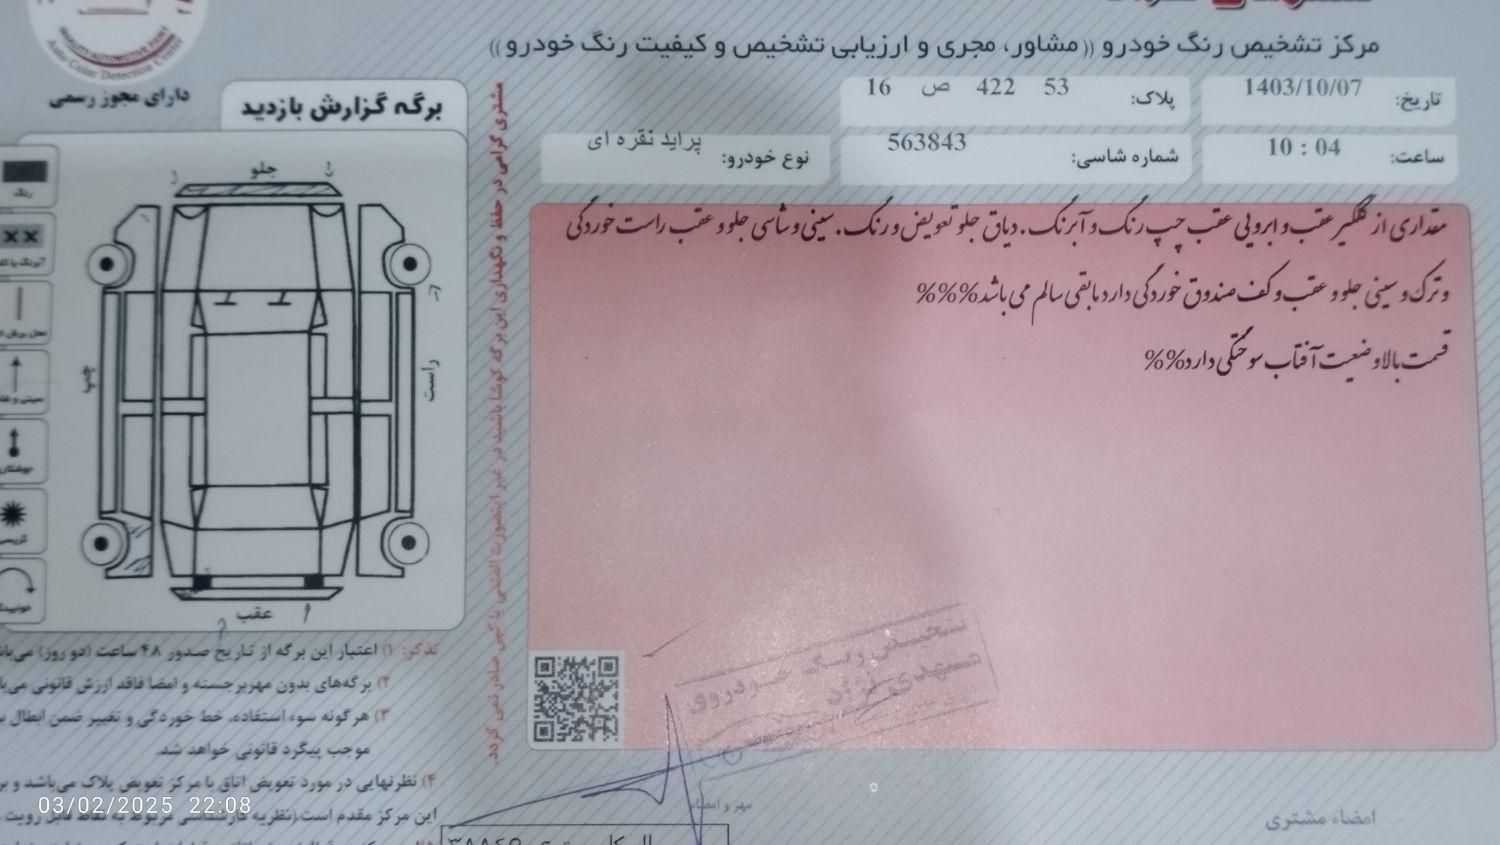 مرکز تشخیص رنگ خودرو (( مشاور، مجری و ارزیابی تشخیص و کیفیت رنگ خودرو ))
QUALITY AUTOMOTIVE PAINT
Auto Color Detection Center
دارای مجوز رسمی
تاریخ: 1403/10/07
پلاک: 53 422 ص 16
ساعت: 10 : 04
شماره شاسی: 563843
نوع خودرو: پراید نقره ای
مقداری از گلگیر عقب و ابرویی عقب چپ رنگ و آبرنگ . دیاق جلو تعویض و رنگ . سینی و شاسی جلو و عقب راست خوردگی
و ترک و سینی جلو و عقب و کف صندوق خوردگی دارد مابقی سالم می باشد %%%
قسمت بالا وضعیت آفتاب سوختگی دارد %%
مشتری گرامی در حفظ و نگهداری این برگه کوشا باشید در غیر اینصورت المثنی یا کپی صادر نمی گردد.
برگه گزارش بازدید
جلو
چپ
راست
عقب
رنگ
جوشکاری
تذکر: ۱) اعتبار این برگه از تاریخ صدور ۴۸ ساعت (دو روز) می‌باشد
۲) برگه‌های بدون مهر برجسته و امضا فاقد ارزش قانونی
۳) هرگونه سوء استفاده، خط خوردگی و تغییر ضمن ابطال
موجب پیگرد قانونی خواهد شد.
۴) نظر نهایی در مورد تعویض اتاق با مرکز تعویض پلاک می‌باشد و
این مرکز مقدم است.(نظریه کارشناسی مربوط به نقاط قابل رویت
تشخیص رنگ خودروی
مهر و امضاء
امضاء مشتری
03/02/2025 22:08